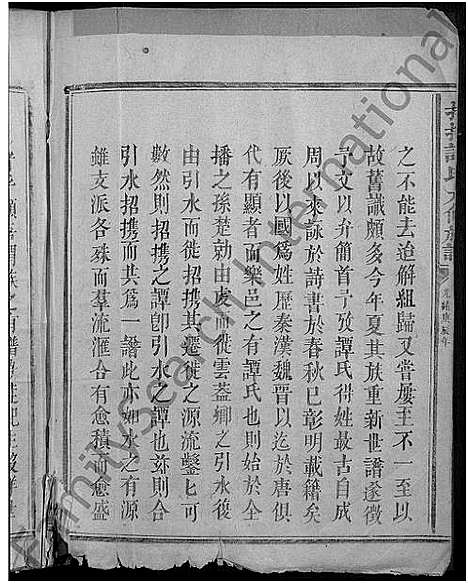 之不能去迨解組歸又嘗屢至不一至以
故舊識頗多今年夏其族重新世譜遂徵
予文以弁簡首予攷譚氏得姓最古自成
周以來詠於詩書於春秋已彰明載籍矣
厥後以國爲姓歷秦漢魏晉以迄於唐俱
代有顯者而樂邑之有譚氏也則始於全
播之孫楚勍由虔而徙雲葢鄉之引水復
由引水而徙招携其遷徙之源流鑿匕可
數然則招携之譚卽引水之譚也茲則合
引水招携而其為一譜此亦如水之有源
雖支派各殊而羣流滙合有愈積而愈盛
FamilySearch International